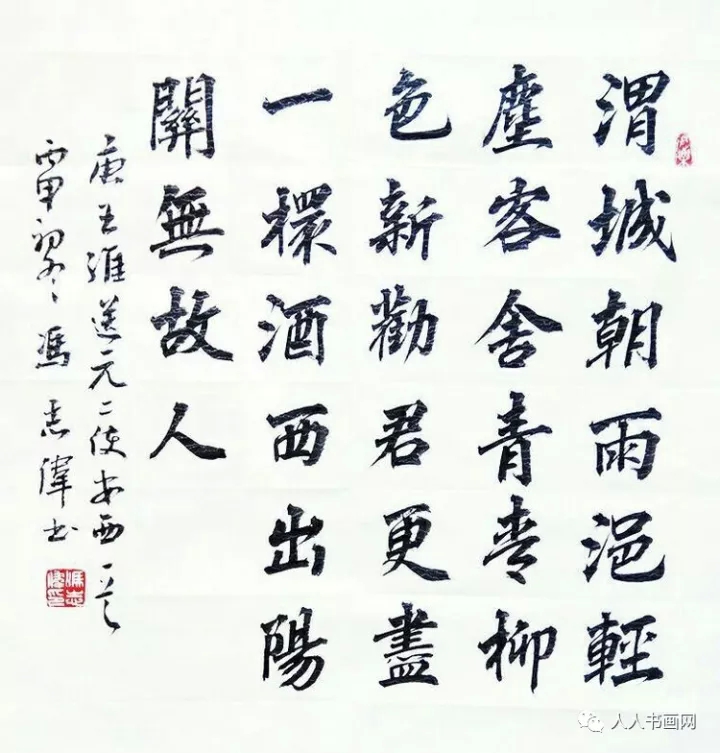 渭城朝雨浥輕
塵客舍青青柳
色新勸君更盡
一杯酒西出陽
關無故人
唐王維送元二使安西一首
丙申初冬馮志偉书
人人书画网